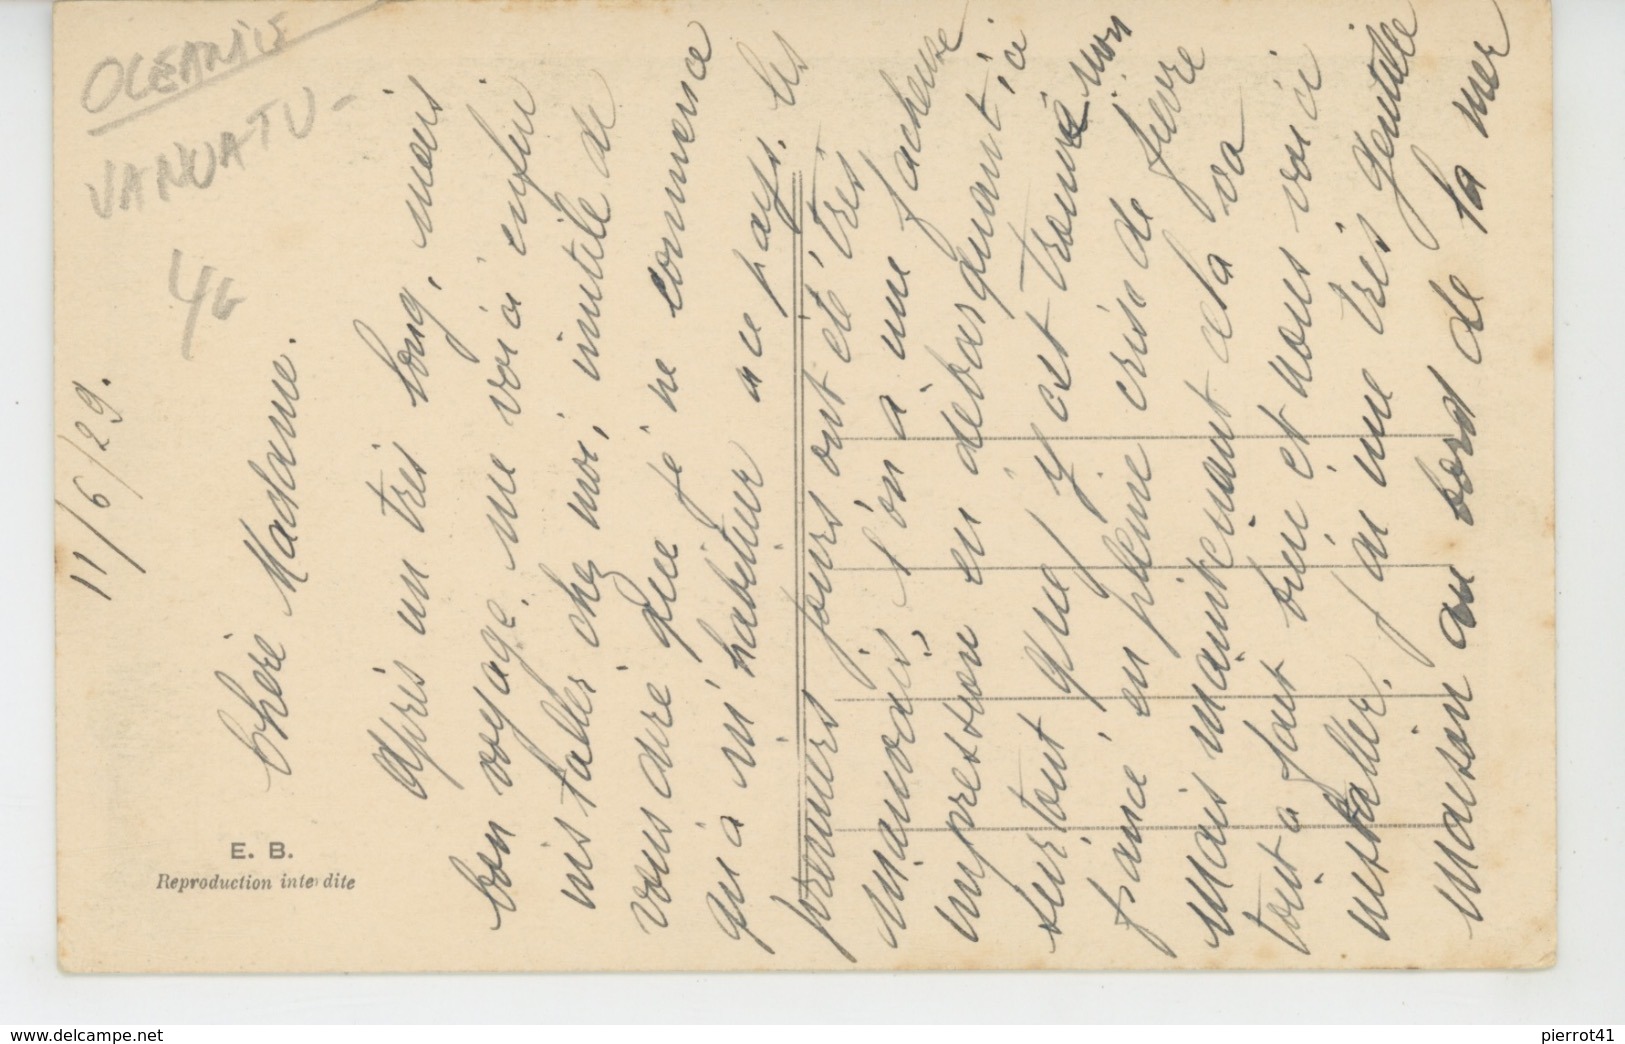 OCEANIE
VANUATU -
46
11/6/29.
Chère Madame.
Après un très long, mais
bon voyage, me voici enfin
installer chez moi, inutile de
vous dire que je ne commence
qu'à m'habituer a ce pays. les
premiers jours ont été très
mauvais, l'on a une facheuse
impression en débarquant ici
surtout que j'y est trouvé mon
fiancé en pleine crise de fievre
mais maintenant cela va
tout a fait bien et nous voici
installer. j'ai une très gentille
maison au bord de la mer
E. B.
Reproduction interdite
www.delcampe.net
pierrot41